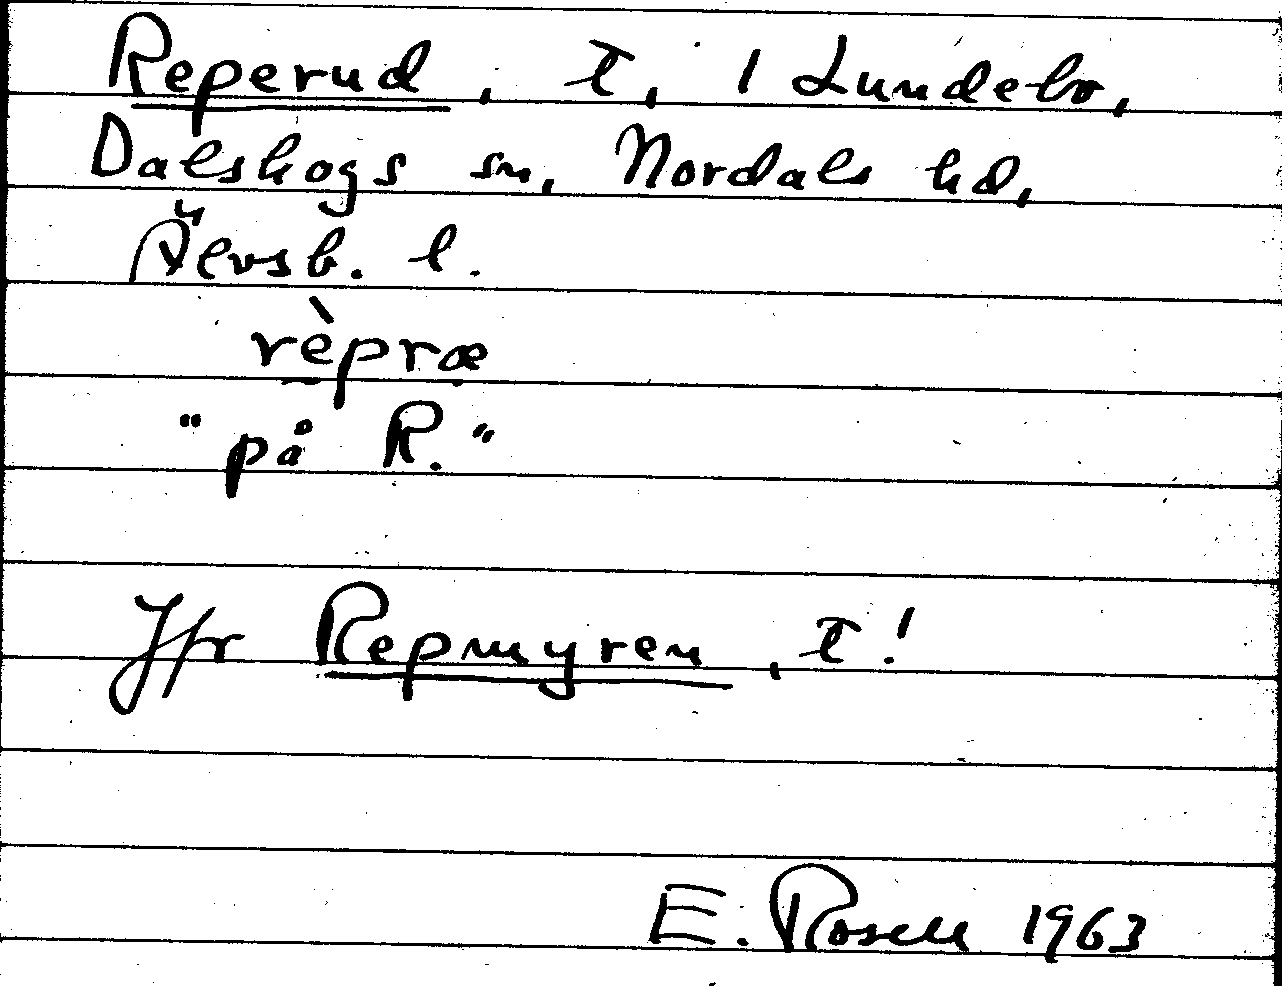 Reperud, t, 1 Lundebo,
Dalskogs sn, Nordals hd,
Älvsb. l.
rèpræ
"på R."
Jfr Repmyren, t!
E. Rosell 1963